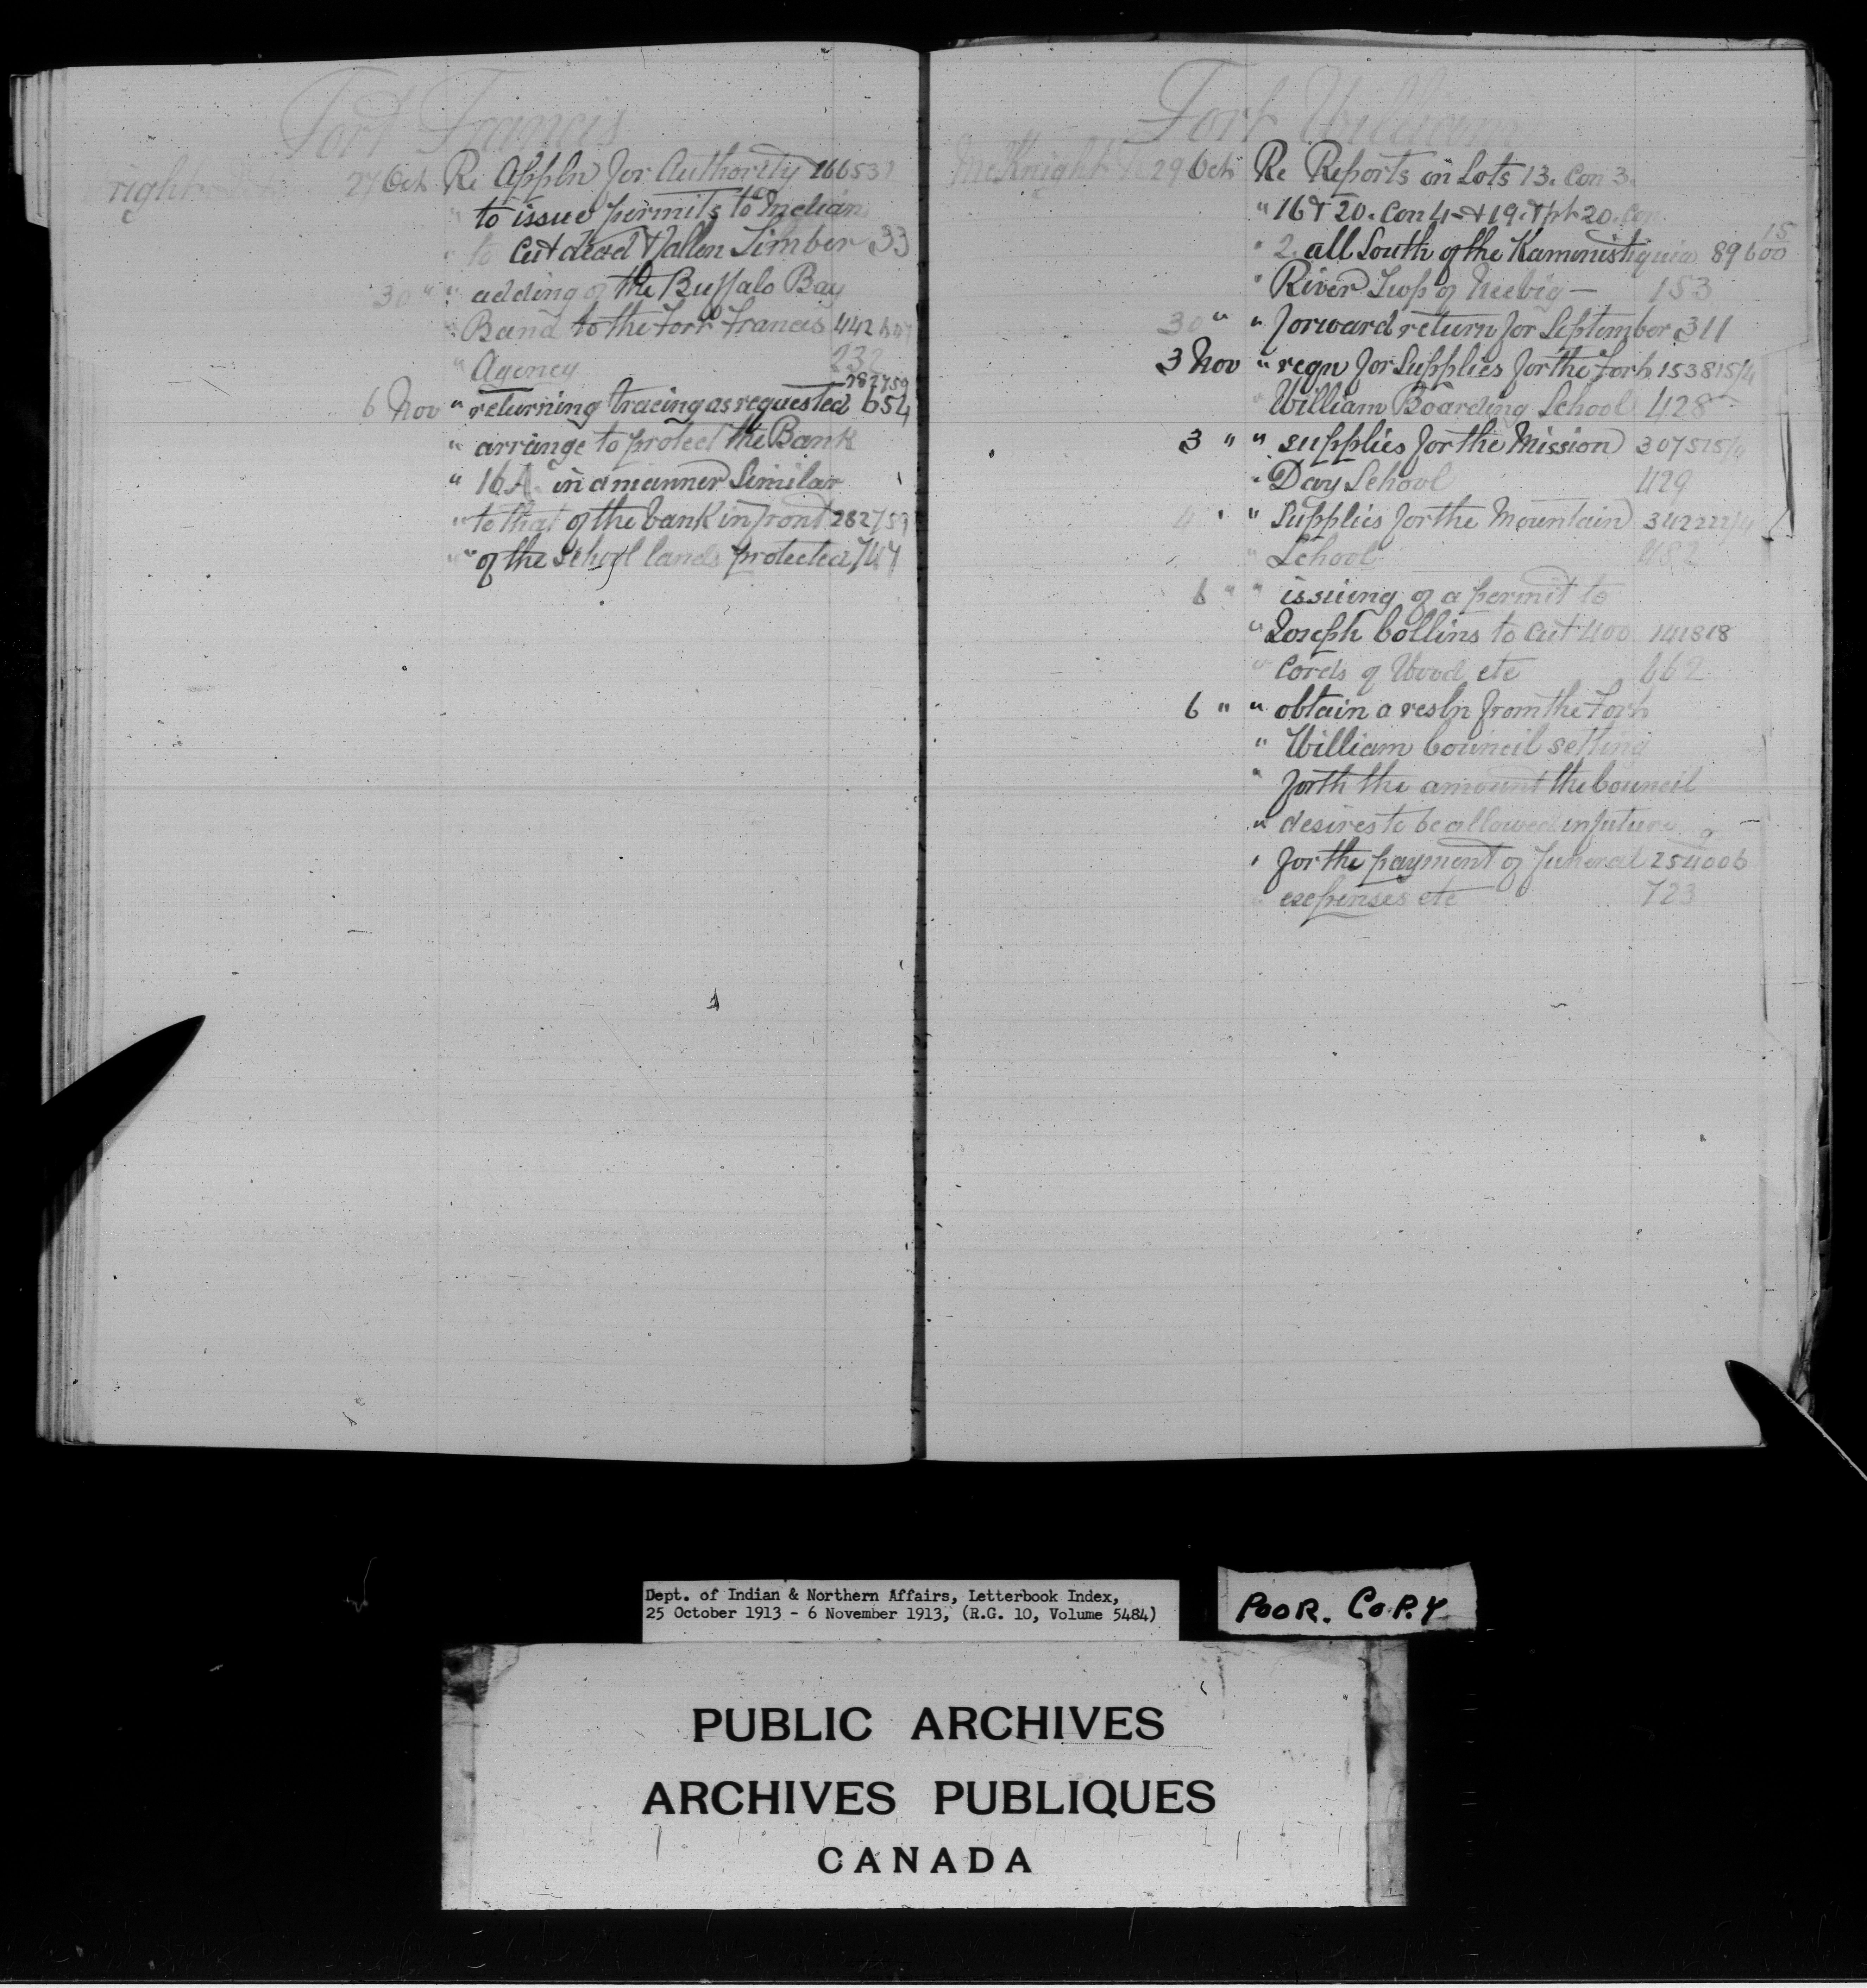 Fort Francis
27 Oct Re Appln for Authority 266537
" to issue permits to Indian
" to cut dead & fallen Timber 33
30 " " adding of the Buffalo Bay
" Band to the Fort Francis 442
" Agency 232
282759
6 Nov " returning tracing as requested 654
" arrange to protect the Bank
" 16A in a manner Similar
" to that of the bank in front 282759
" of the School lands protected 747
Fort William
McKnight 29 Oct Re Reports on Lots 13. Con 3.
" 16 & 20. Con 4 & 19. & pt 20. Con
" 2. all South of the Kaministiquia 89600 15
" River Twp of Neebig — 153
30 " " forward return for September 311
3 Nov " reqn for Supplies for the Fort 153815/4
" William Boarding School 428
3 " " supplies for the Mission 307515/4
" Day School 429
4 " " Supplies for the Mountain 342222/4
" School 482
6 " " issuing of a permit to
" Joseph Collins to cut 400 141818
" Cords of Wood etc 662
6 " " obtain a resln from the Fort
" William Council setting
" forth the amount the Council
" desires to be allowed in future
" for the payment of funeral 254006
" expenses etc 723
Dept. of Indian & Northern Affairs, Letterbook Index,
25 October 1913 - 6 November 1913, (R.G. 10, Volume 5484)
POOR. COPY
PUBLIC ARCHIVES
ARCHIVES PUBLIQUES
CANADA